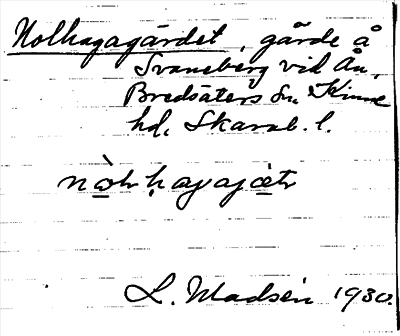 Nolhagagärdet, gärde å
Svaneberg vid ån,
Bredsäters sn. Kinne
hd, Skarab. l.
L. Madsén 1930.